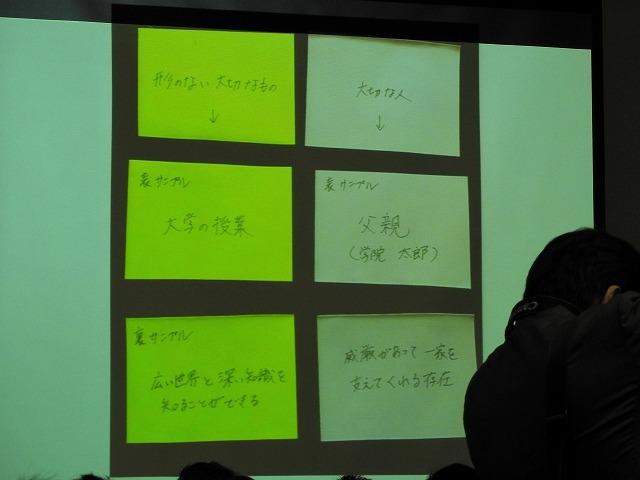 形のない大切なもの
↓
大切な人
↓
表サンプル
大学の授業
表サンプル
父親
(学院 太郎)
裏サンプル
広い世界と深い知識を
知ることができる
威厳があって一家を
支えてくれる存在